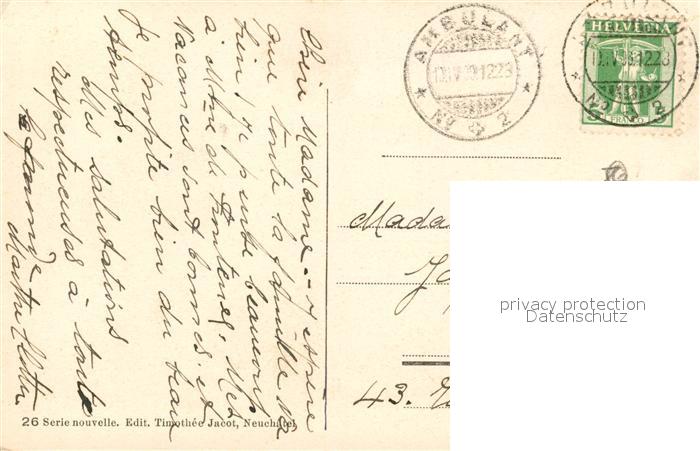 Chère Madame. - J'espère
que toute la famille va
bien; je pense beaucoup
à Mme de Montenet. Mes
vacances sont bonnes et
je profite bien du beau
temps.
Mes salutations
respectueuses à toute
la famille
AMBULANT
12.23
No 2
HELVETIA
5 FRANCO 5
AMBULANT
12.23
No 2
Mada
43.
privacy protection
Datenschutz
26 Serie nouvelle. Edit. Timothée Jacot, Neuchâtel